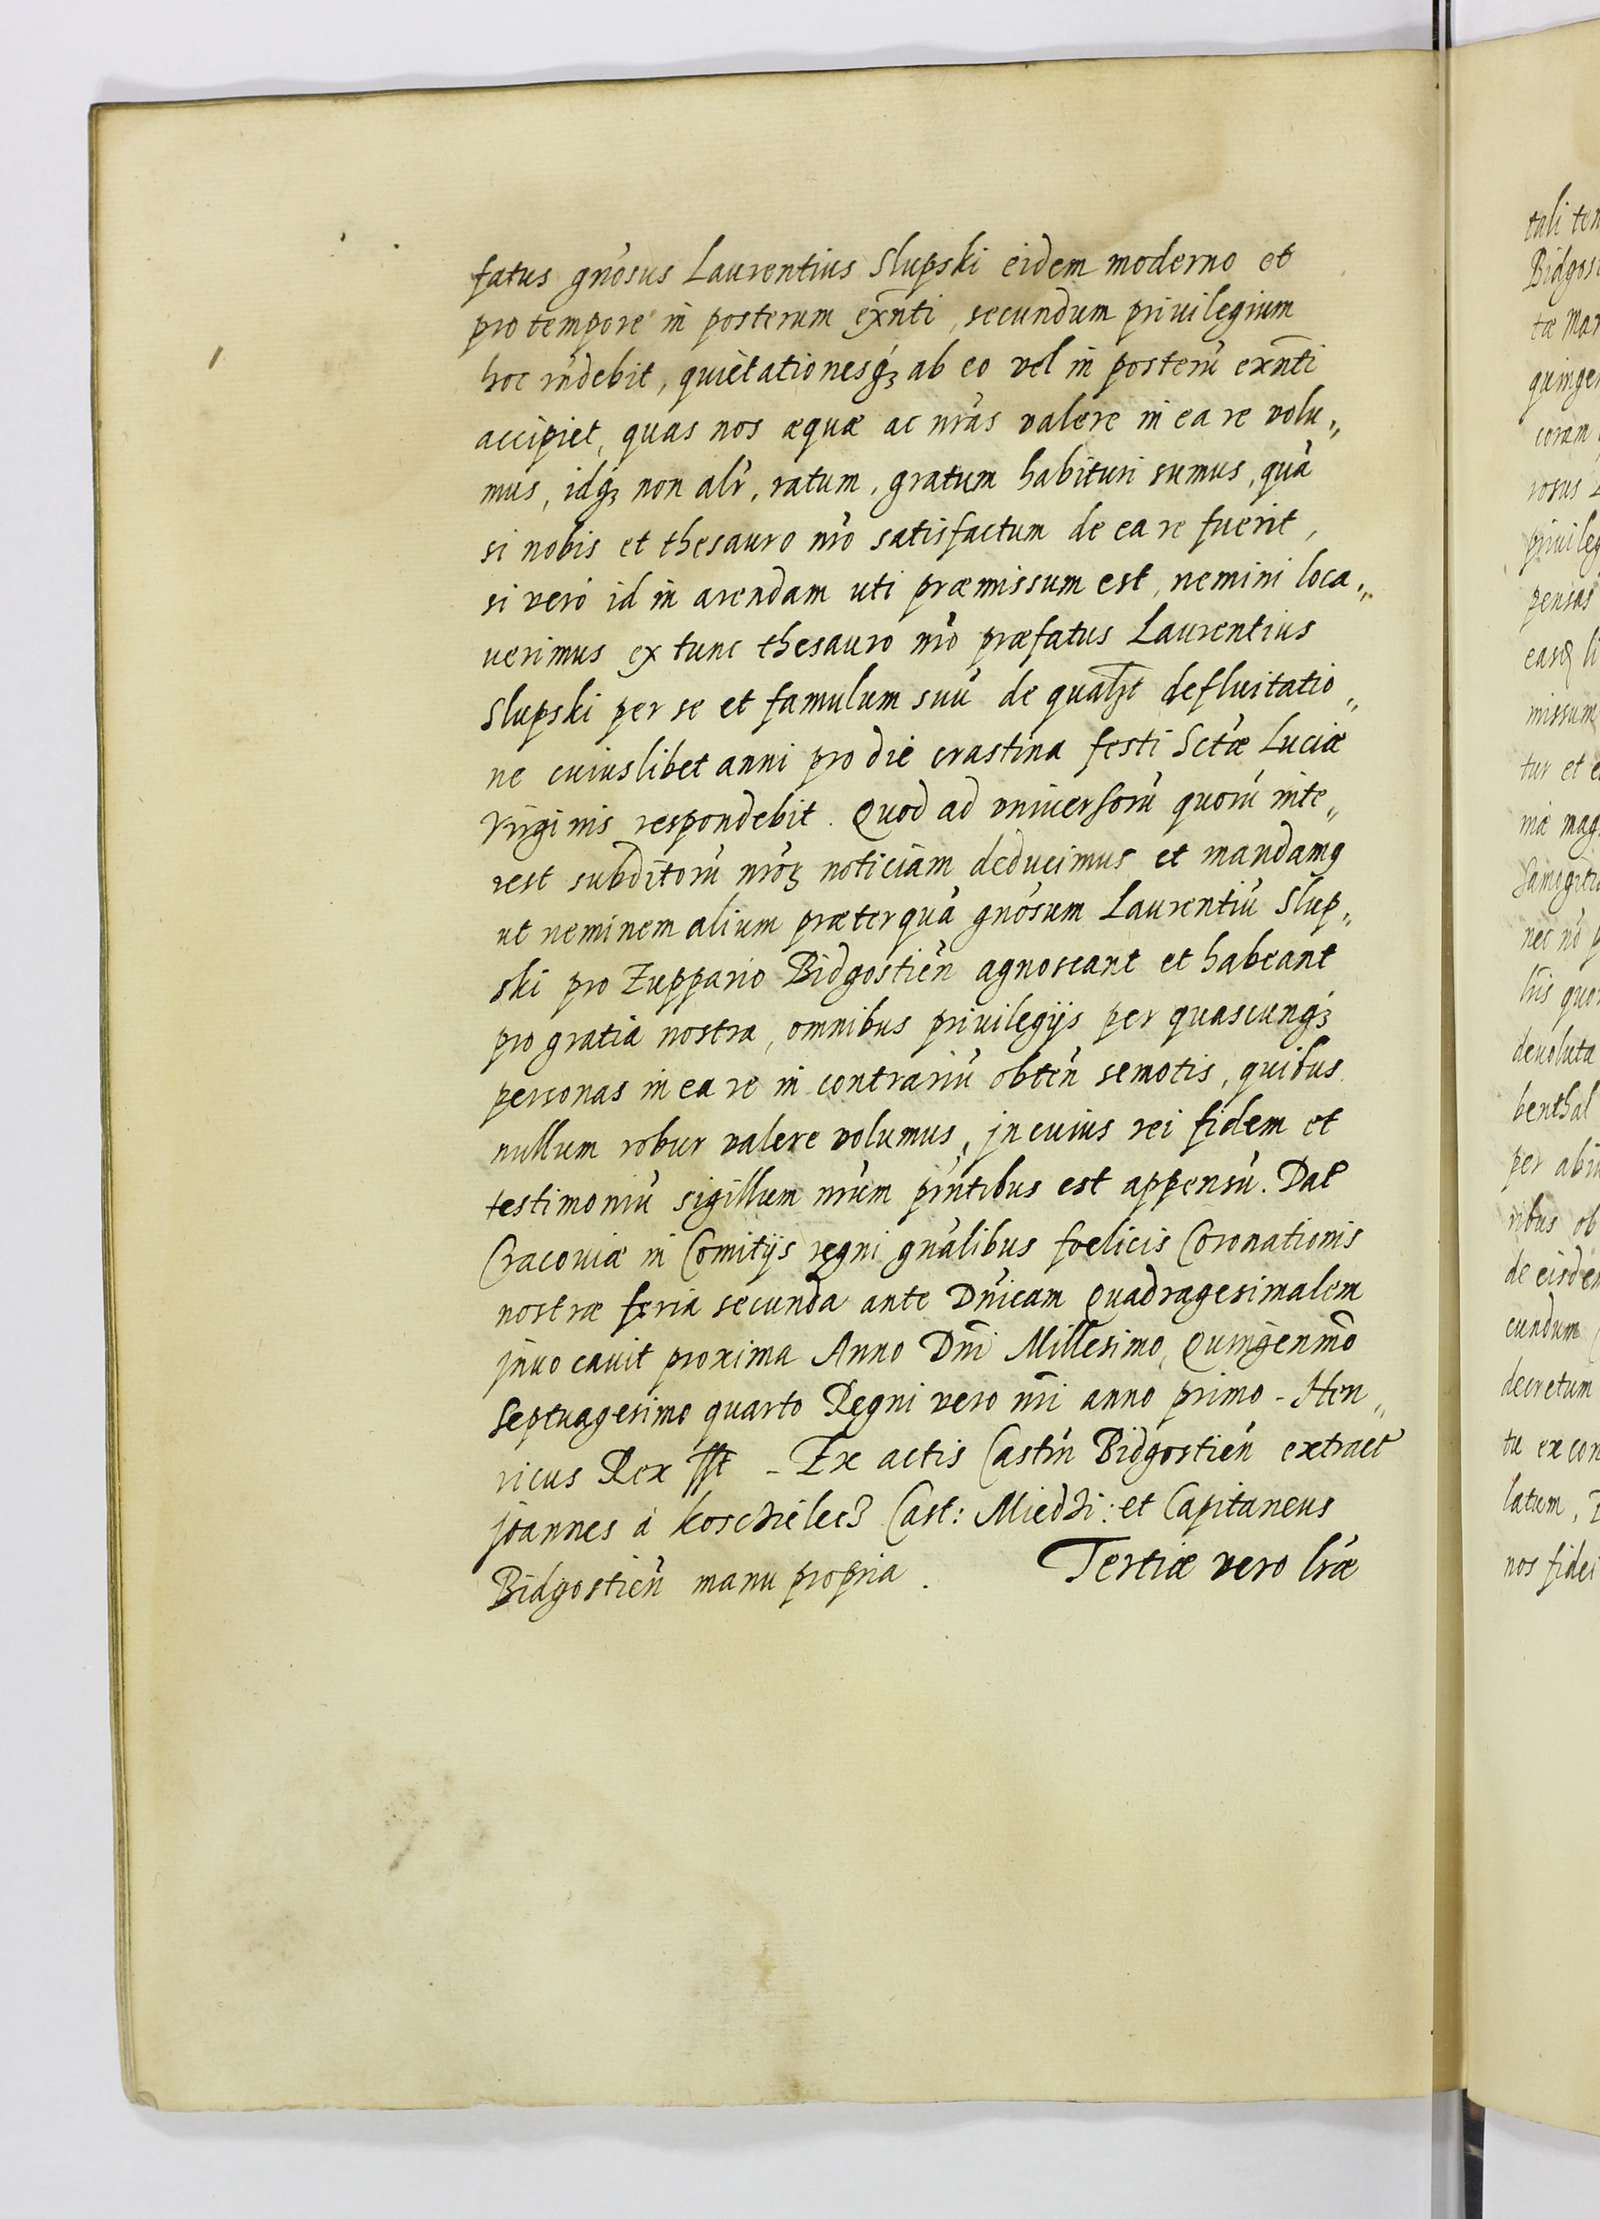 fatus gnosus Laurentius Slupski eidem moderno et
pro tempore in posterum exnti, secundum priuilegium
hoc rndebit, quietationesq3 ab eo vel in posterũ exnti
accipiet, quas nos æquæ ac nras valere in ea re volu„
mus, idq3 non alr, ratum, gratum habituri sumus, quã
si nobis et thesauro nro satisfactum de ea re fuerit,
si verò id in arendam uti præmissum est, nemini loca„
uerimus ex tunc thesauro nro præfatus Laurentius
Slupski per se et famulum suũ de defluitatio„
ne cuiuslibet anni pro die crastina festi Sctæ Luciæ
Virginis respondebit. Quod ad vniuersorũ quorũ inte„
rest subditorũ nro3 noticiam deducimus et mandamq
ut neminem alium præterquã gnosum Laurentiũ Slup„
ski pro Zuppario Bidgostien agnoscant et habeant
pro gratia nostra, omnibus priuilegijs per quascunq3
personas in ea re in contrariũ obten semotis, quibus
nullum robur valere volumus, jn cuius rei fidem et
testimoniũ sigillum nrum pntibus est appensũ. Dat
Cracouiæ in Comitijs regni gnalibus foelicis Coronationis
nostræ feria secunda ante Dnicam Quadragesimalem
jnuocauit proxima Anno Dni Millesimo, Quingenmo
Septuagesimo quarto Regni vero nri anno primo - Hen„
ricus Rex - Ex actis Castrn Bidgostien extract
joannes à Koschielec3 Cast: Miedzi: et Capitaneus
Bidgostien manu propria. Tertiæ vero lræ
tali ten
Bidgosi
tæ Mar
quinge
coram
rosus
priuileg
pensas
easq li
missum
tur et e
niæ mag
Samogitiæ
nec nõ p
lris quo
deuoluta
benthal
per abiu
ribus ob
de eisde
cundum
decretum
tu ex con
latum,
nos fidei